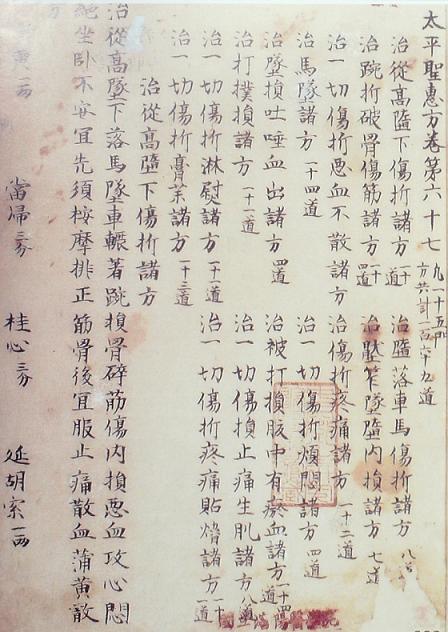 太平聖惠方卷第六十七 凡一十五門 方共計一百六十九道
治從高墜下傷折諸方 十道 治墮落車馬傷折諸方 八道
治踠折破骨傷筋諸方 治壓笮墜墮內損諸方 七道
治一切傷折惡血不散諸方 治傷折疼痛諸方 一十二道
治馬墜諸方 一十四道 治一切傷折煩悶諸方 四道
治墜損吐唾血出諸方 四道 治被打損腹中有瘀血諸方 一十四道
治打撲損諸方 一十二道 治一切傷損止痛生肌諸方 八道
治一切傷折淋熨諸方 一十二道 治一切傷折疼痛貼熁諸方 一十道
治一切傷折膏藥諸方 一十三道
治從高墜下傷折諸方
治從高墜下落馬墜車輾著踠損骨碎筋傷內損惡血攻心悶
絕坐臥不安宜先須按摩排正筋骨後宜服止痛散血蒲黃散
方
當歸三分 桂心三分 延胡索一兩